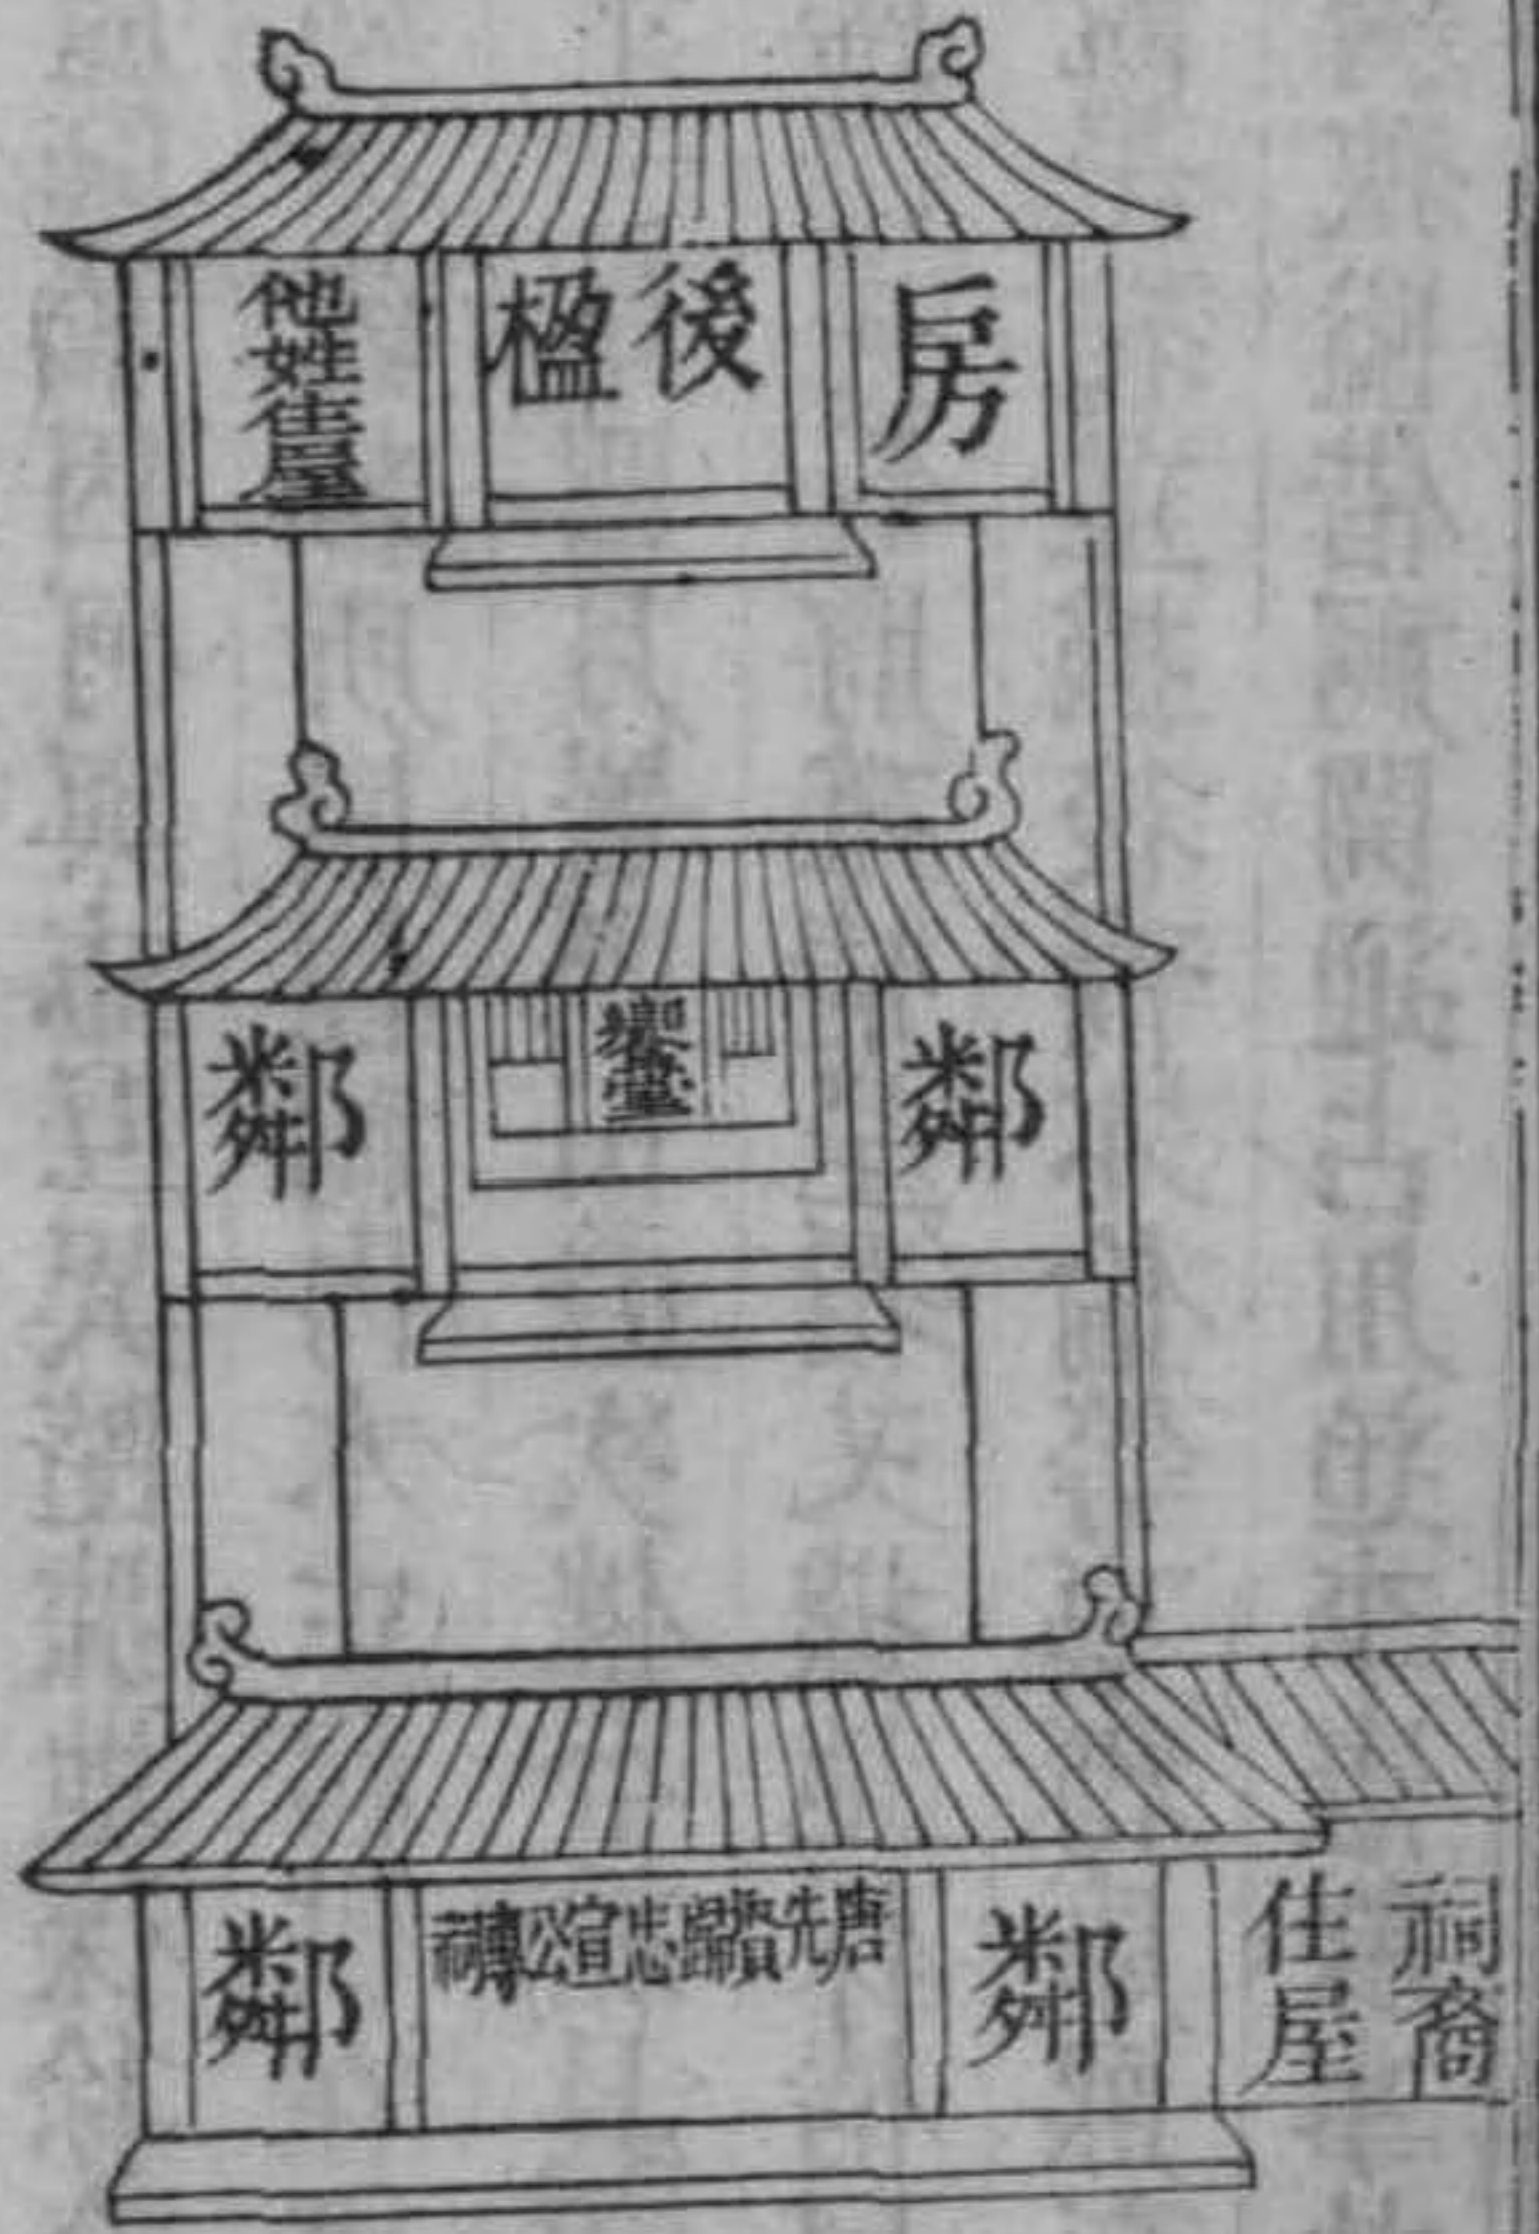 房
後楹
他姓住屋
鄰
饗堂
鄰
祠裔
住屋
鄰
唐先賢歸忠宣公專祠
鄰